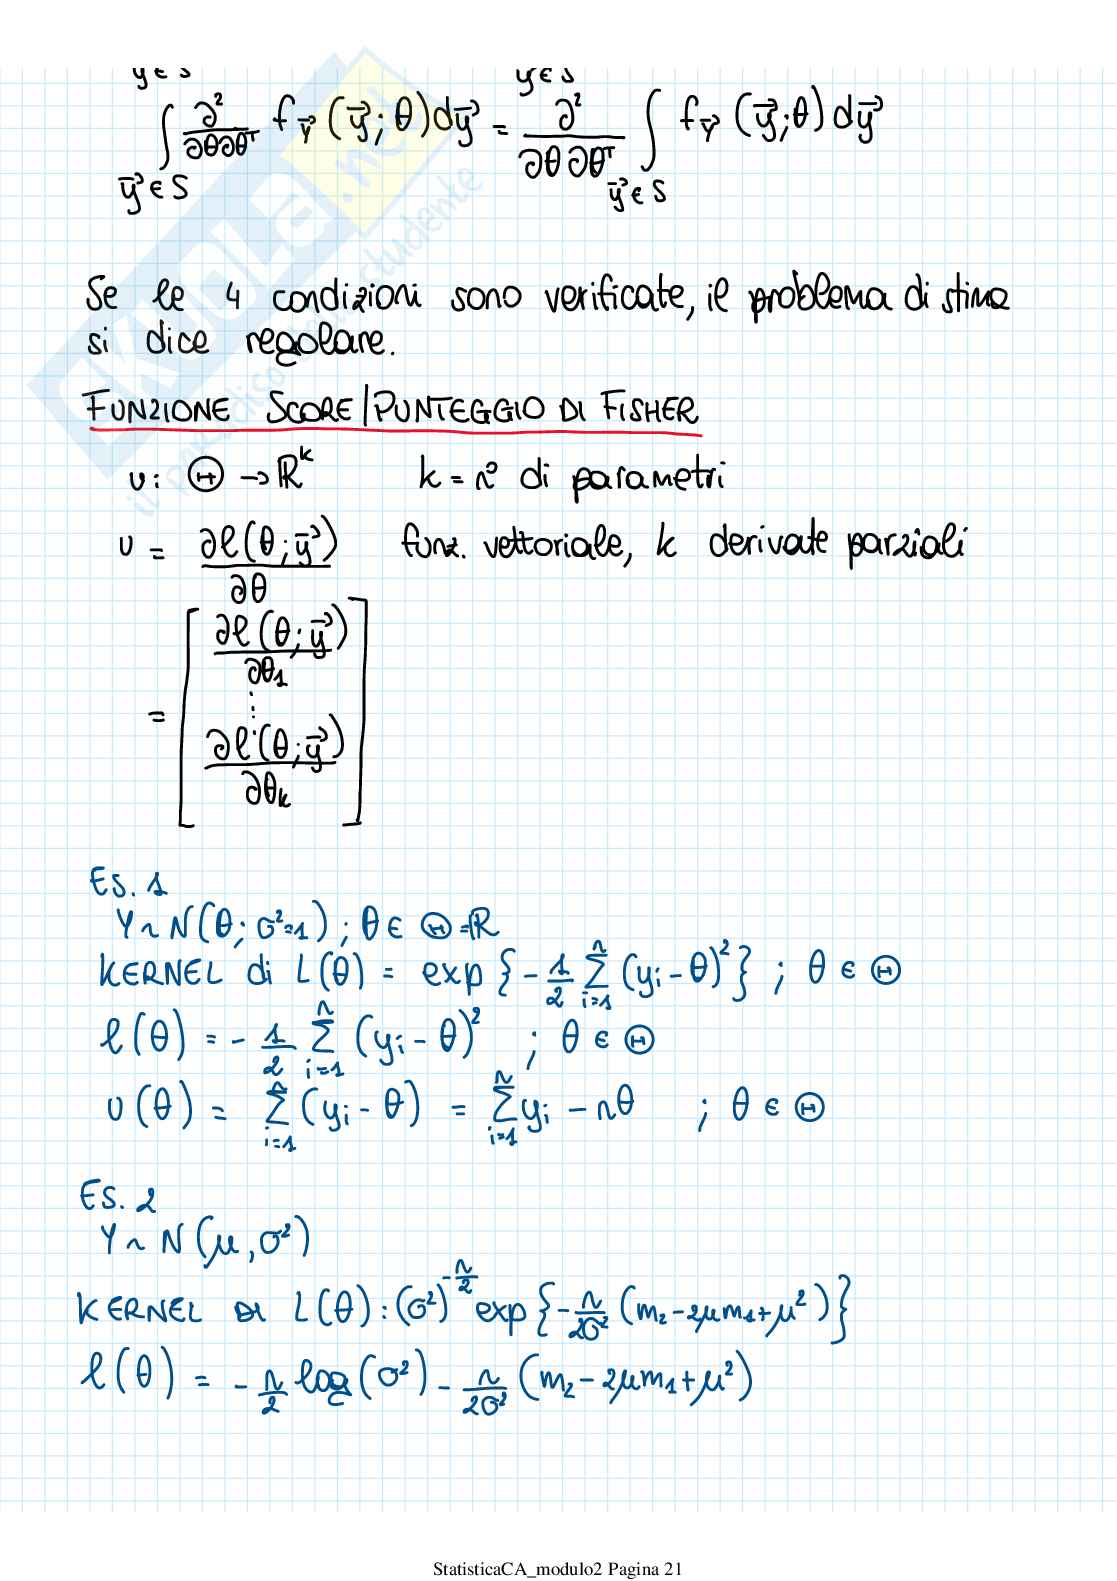 y∈S y∈S
∫ ∂²/∂θ∂θᵀ f_Y⃗ (y⃗; θ) dy⃗ = ∂²/∂θ∂θᵀ ∫ f_Y⃗ (y⃗; θ) dy⃗
y⃗∈S y⃗∈S
Se le 4 condizioni sono verificate, il problema di stima
si dice regolare.
FUNZIONE SCORE/PUNTEGGIO DI FISHER
υ: Θ → ℝᵏ k = n° di parametri
υ = ∂ℓ(θ; y⃗)/∂θ funz. vettoriale, k derivate parziali
= [ ∂ℓ(θ; y⃗)/∂θ₁
⋮
∂ℓ(θ; y⃗)/∂θₖ ]
ES. 1
Y ~ N(θ; σ²=1) ; θ ∈ Θ=ℝ
KERNEL di L(θ) = exp{-1/2 Σᵢ₌₁ⁿ (yᵢ - θ)²} ; θ ∈ Θ
ℓ(θ) = - 1/2 Σᵢ₌₁ⁿ (yᵢ - θ)² ; θ ∈ Θ
υ(θ) = Σᵢ₌₁ⁿ (yᵢ - θ) = Σᵢ₌₁ⁿ yᵢ - nθ ; θ ∈ Θ
ES. 2
Y ~ N(μ, σ²)
KERNEL DI L(θ): (σ²)^(-n/2) exp{-n/2σ² (m₂ - 2μm₁ + μ²)}
ℓ(θ) = - n/2 log(σ²) - n/2σ² (m₂ - 2μm₁ + μ²)
StatisticaCA_modulo2 Pagina 21